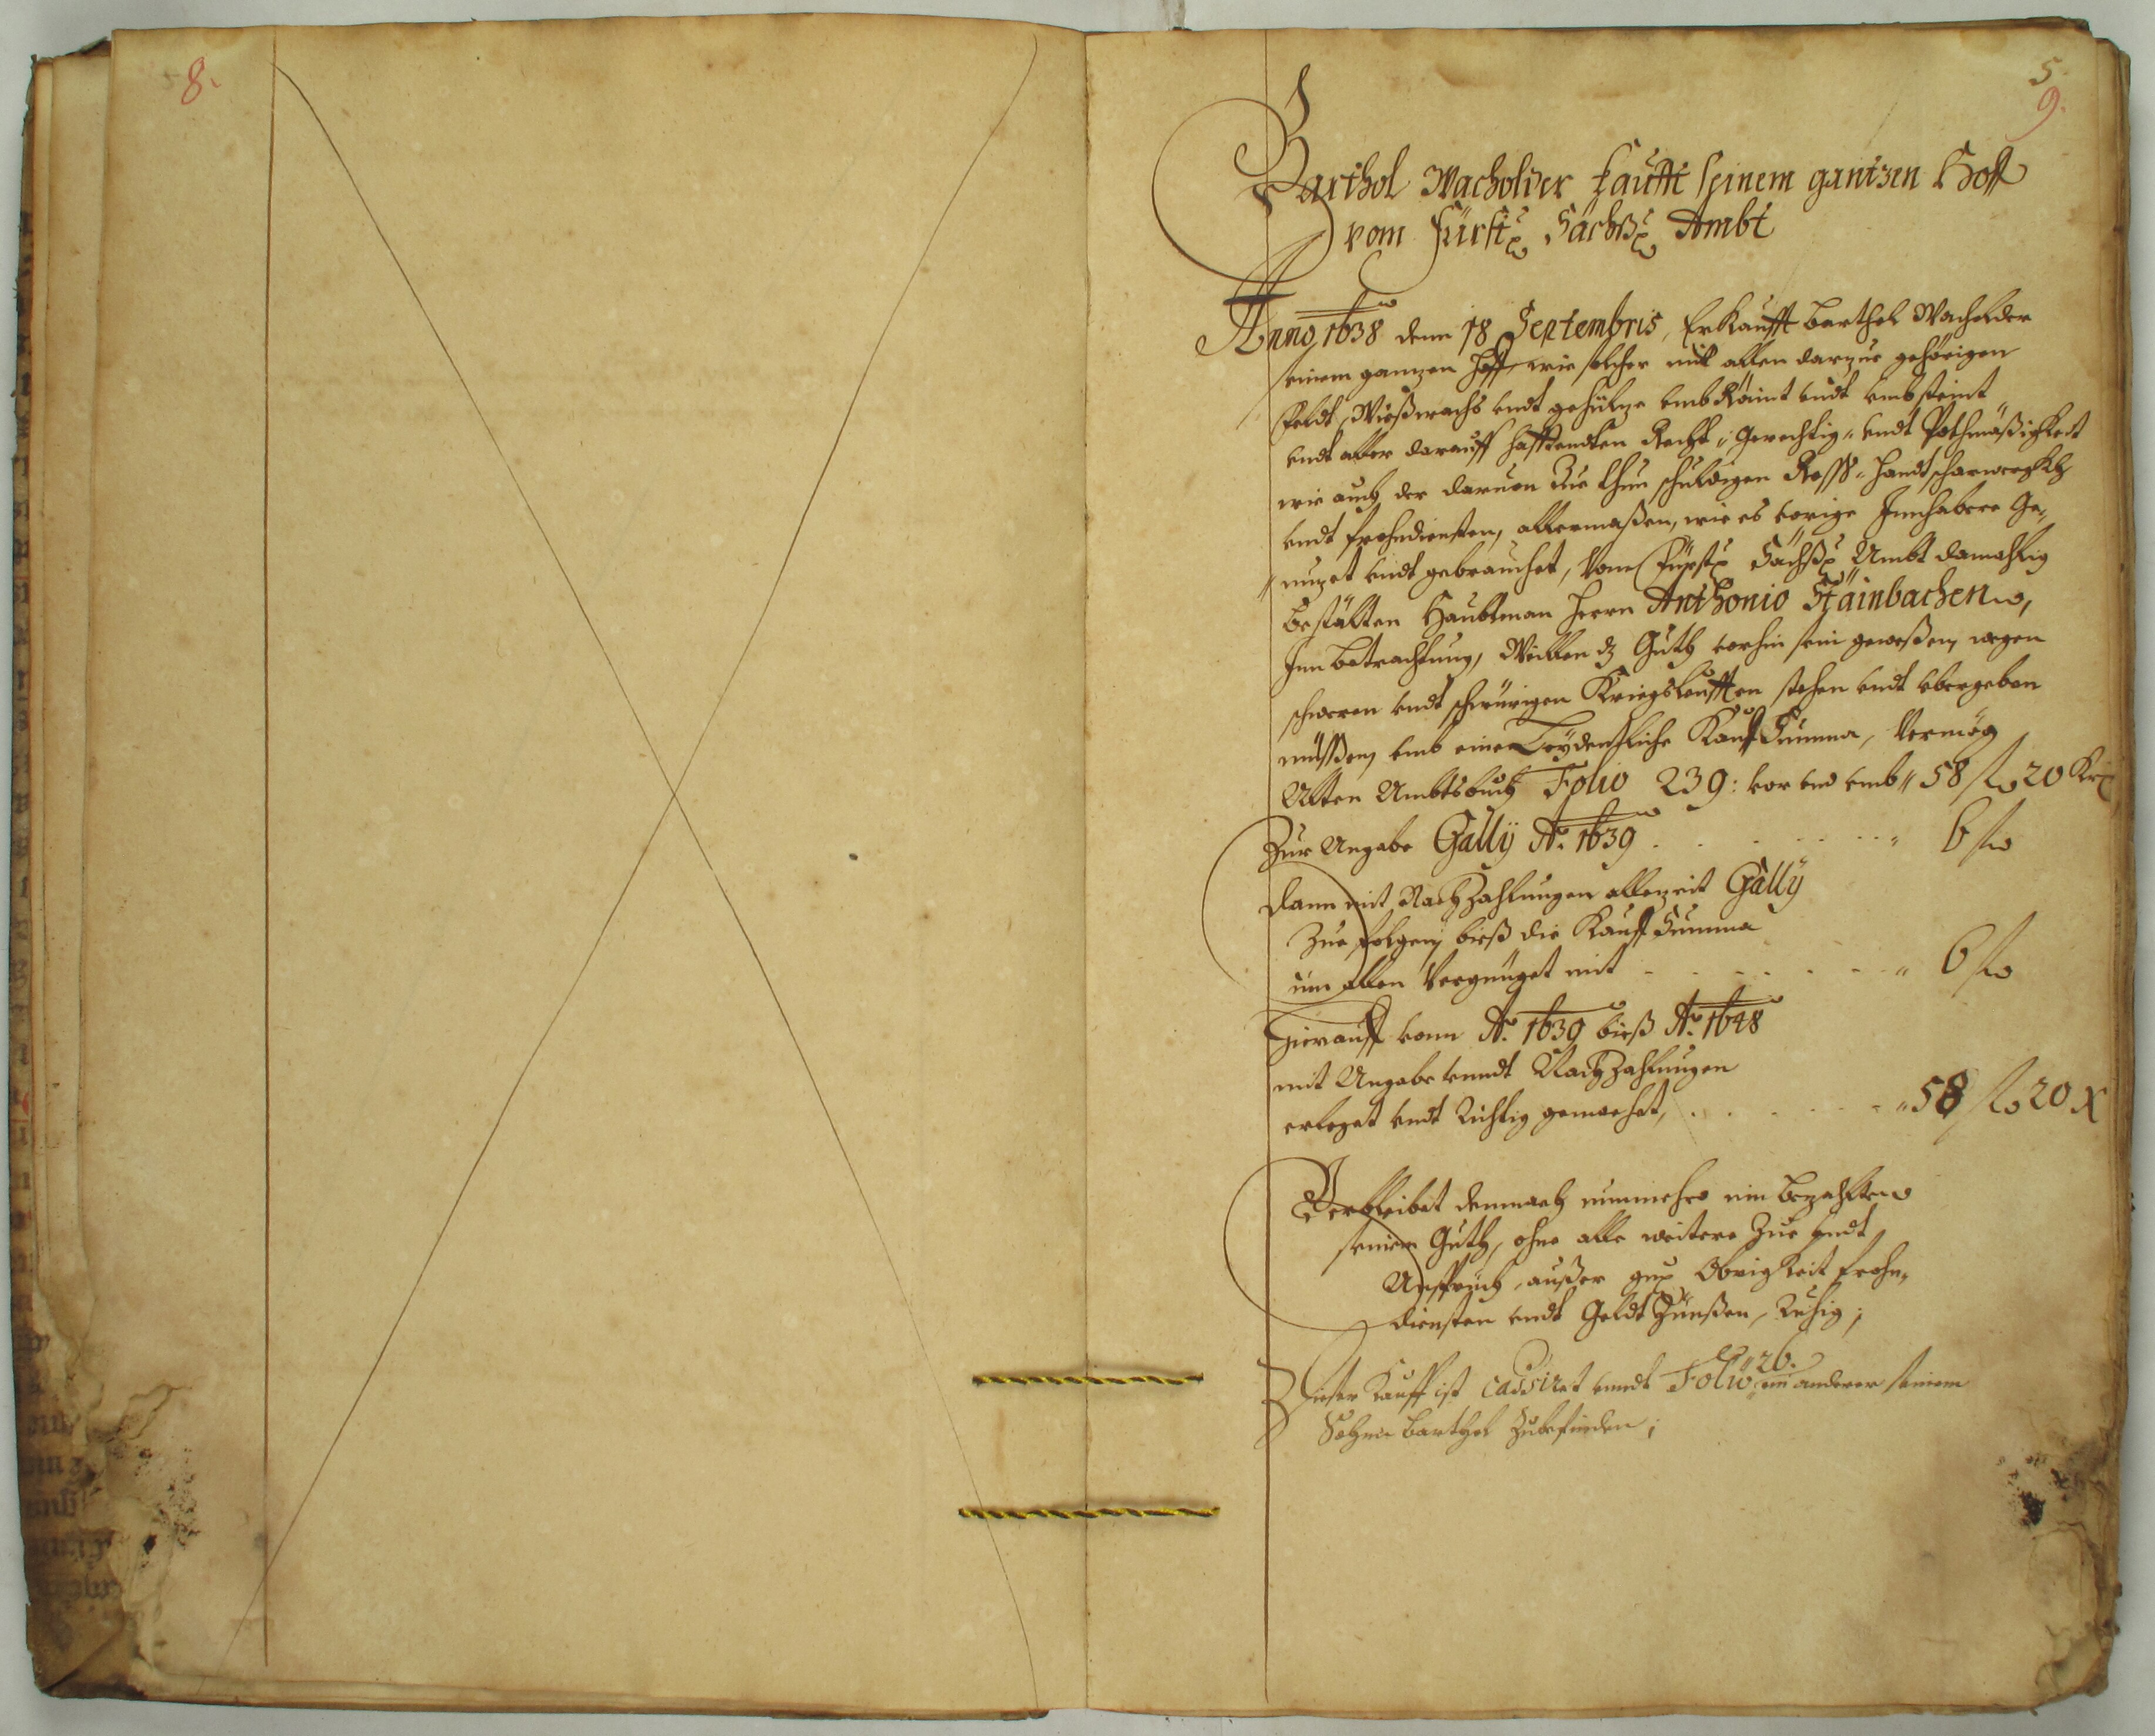 8.
5.
9.
Barthol Wacholder kaufft seinem gantzen Hoff
vom Fürstl: Sächß: Ambt
Anno 1638 denn 18 Septembris, Erkaufft Barthel Wacholder
seinem ganzen Hoff, wie solcher mit allen darzue gehörigen
Feldt, Wießwachs undt gehültze umb Räint undt umbsteint
undt aller darauff hafftendten Recht, Gerechtig- undt Pothmäßigkeit
wie auch der daruon zue thun schuldigen Roß- Handtscharwerckh
undt Frohndiensten, allermaßen, wie es vorige Innhabere Ge-
nuzet undt gebrauchet, Vom Fürstl: Sächß: Ambt damahlig
bestälten Haubtman Herrn Anthonio Stainbachen,
Inn betrachtung, Weillen dz Guth vorhin sein gewesen, wegen
schweren undt schwürigen Kriegsleufften stehen undt übergeben
müssen, umb eine Leydenliche Kauf Summa, Vermög
Alten Ambtsbuch Folio 239: vor und umb " 58 fl 20 Kr:
Zur Angabe Gallÿ Ao. 1639 . . . . . " 6 fl
dann mit Nachzahlungen allezeit Gallÿ
Zue folgen, bieß die Kauff Summa
im allen Vergnüget mit - - - - - " 6 fl
Hierauff vonn Ao. 1639 bieß Ao. 1648
mit Angabe unndt Nachzahlungen
erleget undt Richtig gemachet, . . . . . " 58 fl 20 x
Verbleibet demnach nunmehro ein bezahlten
seinem Guth, ohne alle weitere Zue undt
Anspruch, außer Obrigkeit Frohn-
diensten undt Geldt Zünßen, Ruhig;
Dieser Kauff ist cassiret unndt Folio 26. ein anderer seinem
Sohne Barthel Zubefinden;